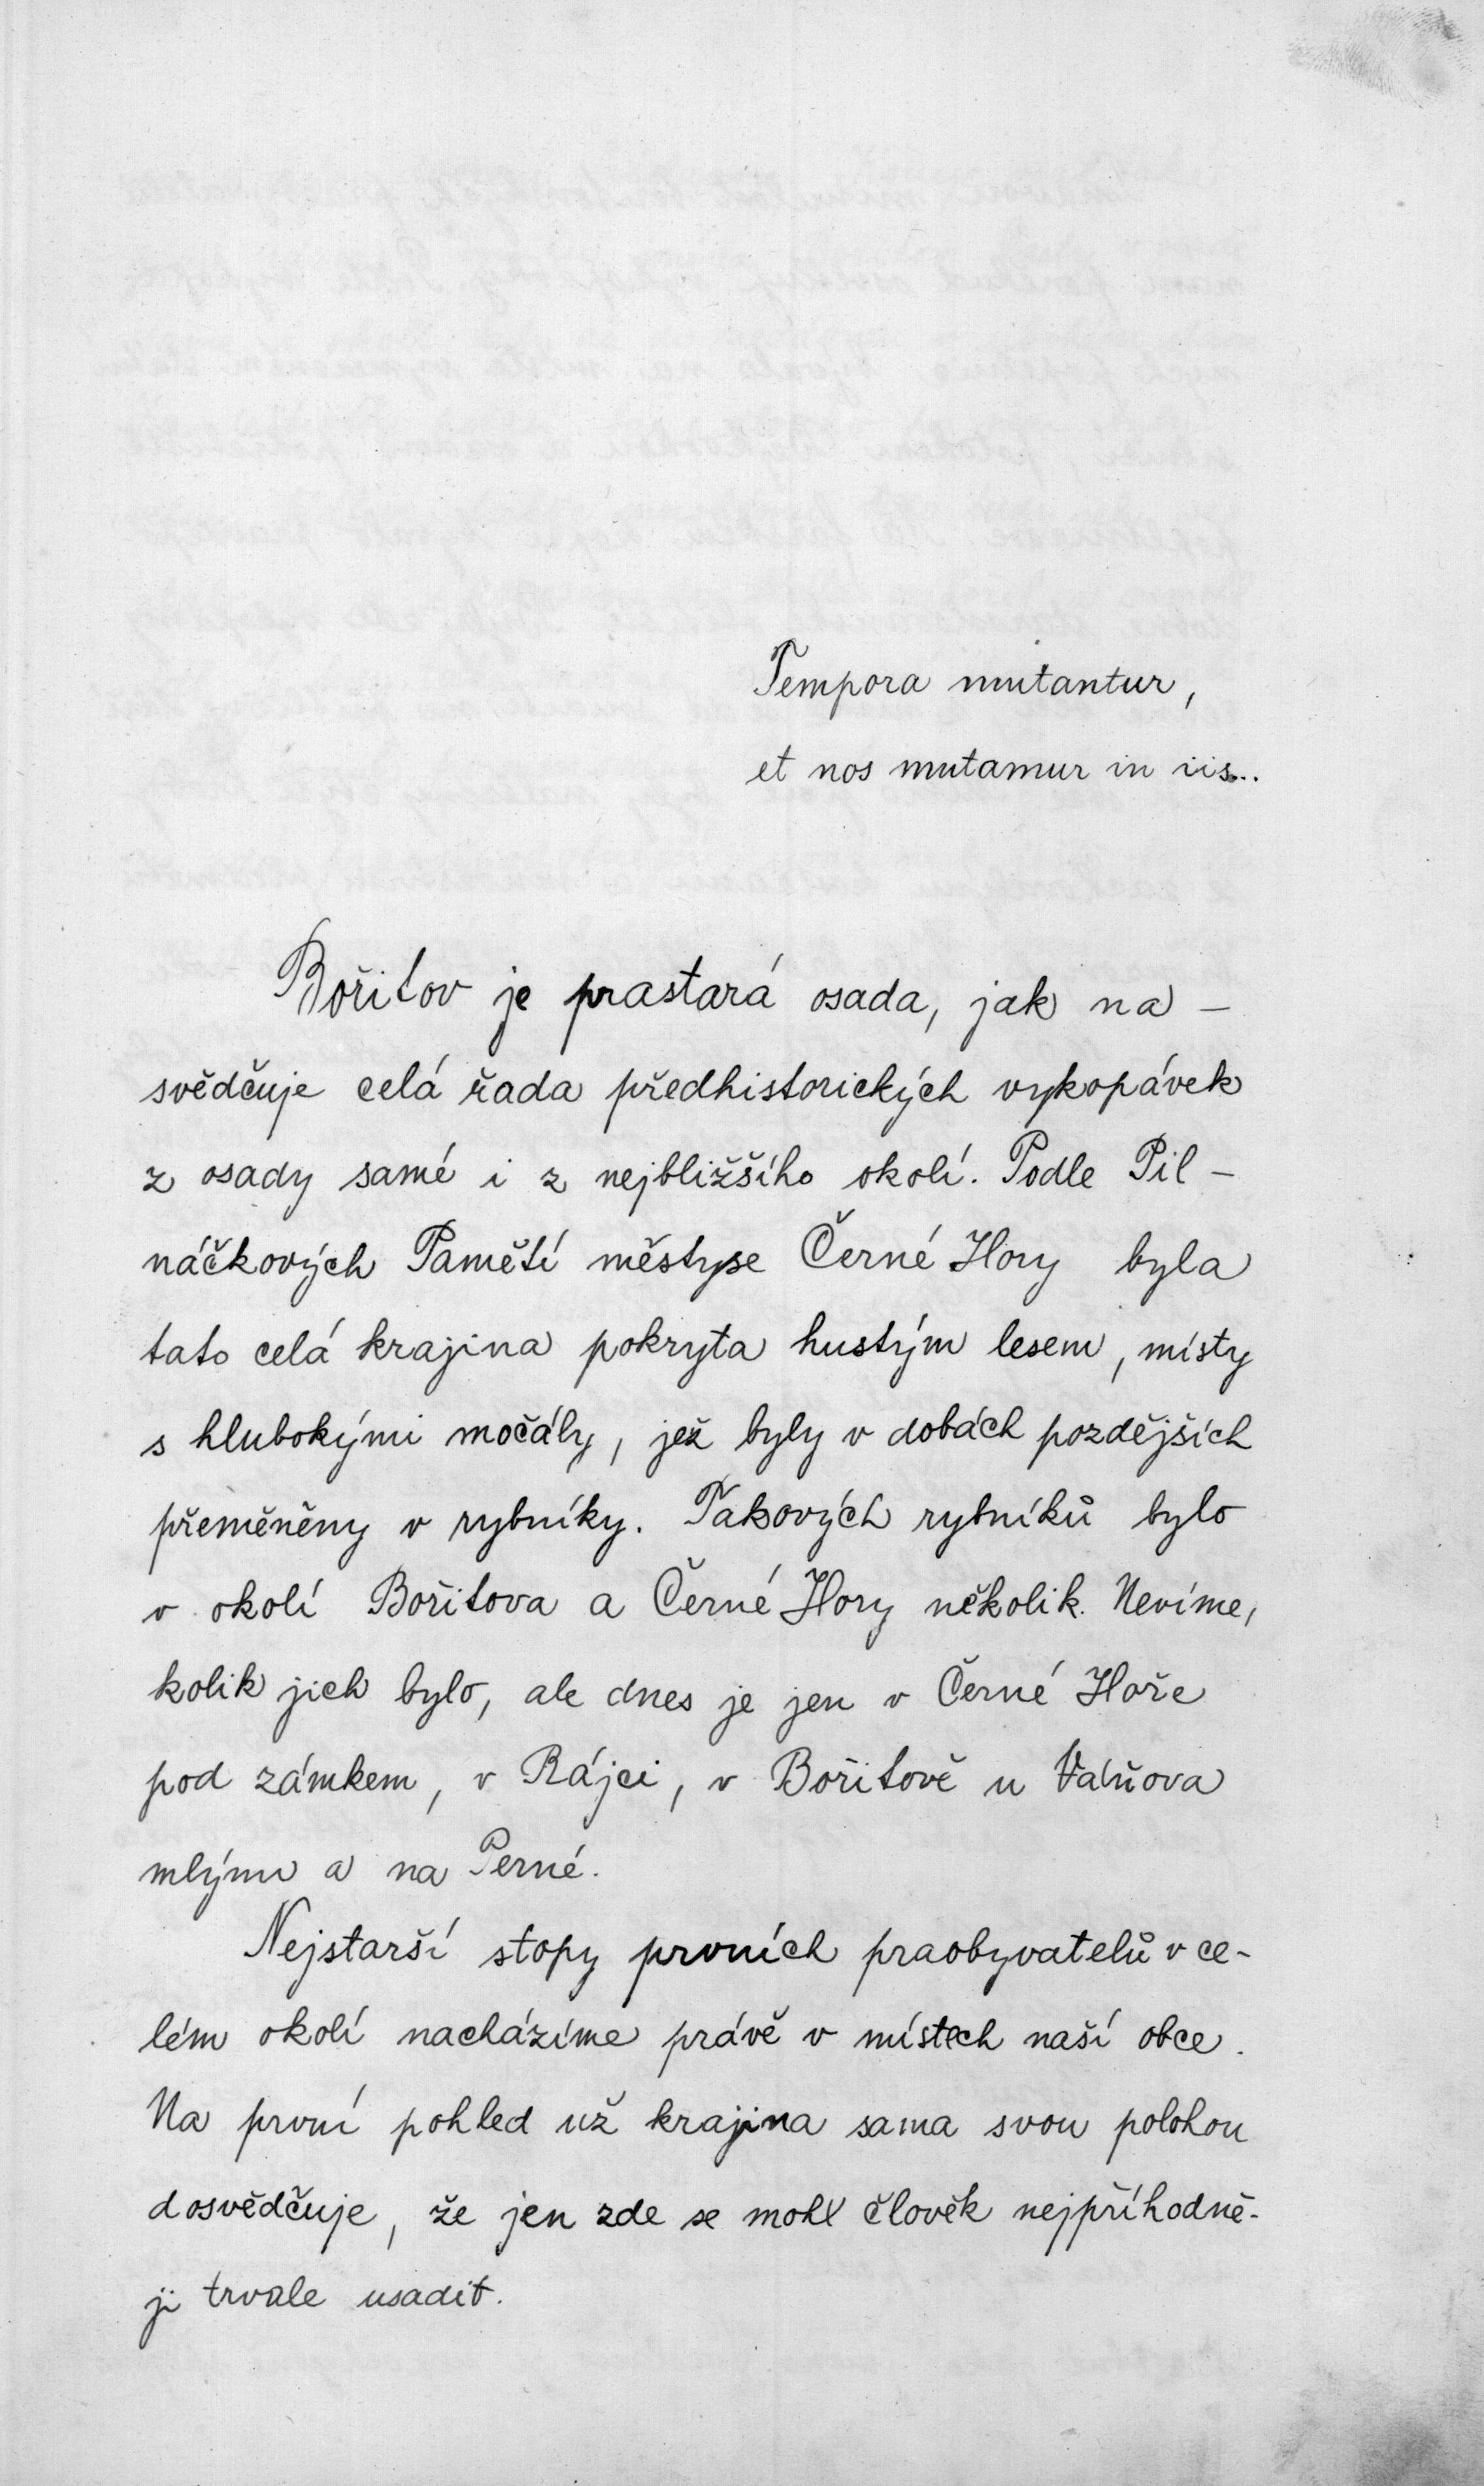 Tempora mutantur,
et nos mutamur in iis...
Bořitov je prastará osada, jak na-
svědčuje celá řada předhistorických vykopávek
z osady samé i z nejbližšího okolí. Podle Pil-
náčkových Pamětí městyse Černé Hory byla
tato celá krajina pokryta hustým lesem, místy
s hlubokými močály, jež byly v dobách pozdějších
přeměněny v rybníky. Takových rybníků bylo
v okolí Bořitova a Černé Hory několik. Nevíme,
kolik jich bylo, ale dnes je jen v Černé Hoře
pod zámkem, v Rájci, v Bořitově u Váňova
mlýnu a na Perné.
Nejstarší stopy prvních praobyvatelů v ce-
lém okolí nacházíme právě v místech naší obce.
Na první pohled už krajina sama svou polohou
dosvědčuje, že jen zde se mohl člověk nejpříhodně-
ji trvale usadit.